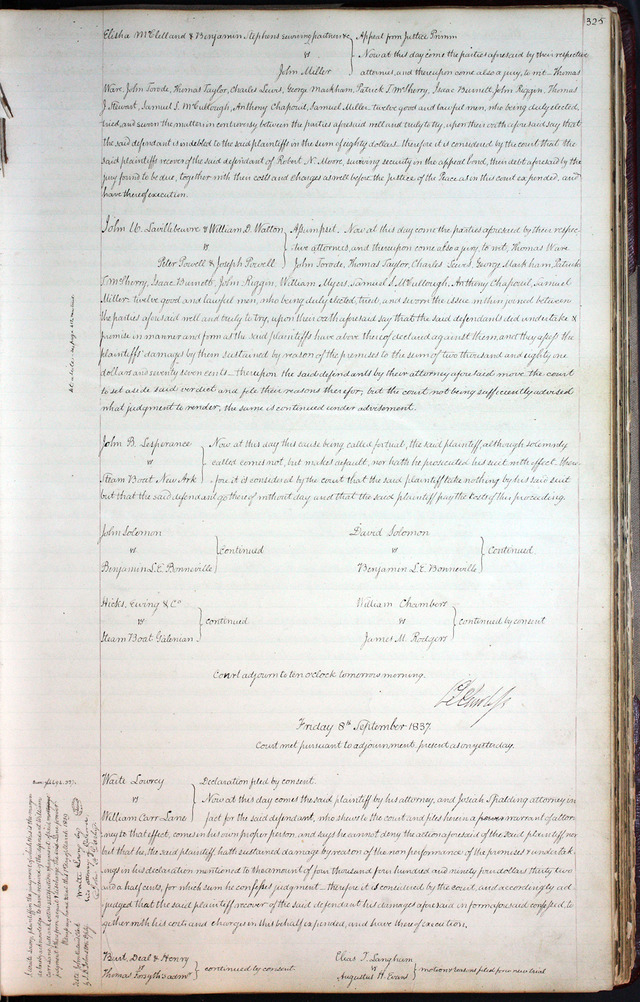 325
Elisha McClelland & Benjamin Stephens surviving partners &c } Appeal from Justice Primm
vs } Now at this day come the parties aforesaid by their respective
John Miller } attornies, and thereupon come also a jury, to wit_ Thomas
Ware, John Torode, Thomas Taylor, Charles Lewis, George Markham, Patrick T. McSherry, Isaac Burnett John Riggin, Thomas
J. Stewart, Samuel S. McCullough, Anthony Chapoud, Samuel Miller, twelve good and lawful men, who being duly elected,
tried, and sworn the matters in controversy between the parties aforesaid well and truly to try, upon their oaths aforesaid say that
the said defendant is indebted to the said plaintiffs in the sum of eighty dollars. therefore it is considered by the court that the
said plaintiffs recover of the said defendant of Robert N. Moore, surviving security in the appeal bond, their debt aforesaid by the
jury found to be due, together with their costs and charges as well before the Justice of the Peace as in this court expended, and
have thereof execution.
John W. & William D. Watton } Assumpsit. Now at this day come the parties aforesaid by their respec-
vs } tive attornies, and thereupon come also a jury, to wit, Thomas Ware
Peter Powell & Joseph Powell } John Torode, Thomas Taylor, Charles Lewis, George Markham, Patrick
T. McSherry, Isaac Burnett, John Riggin, William Myers, Samuel S. McCullough, Anthony Chapoud, Samuel
Miller. twelve good and lawful men, who being duly elected, tried, and sworn the issue within joined between
the parties aforesaid well and truly to try, upon their oaths aforesaid say that the said defendants did undertake &
promise in manner and form as the said plaintiffs have above thereof declared against them, and they assess the
plaintiffs' damages by them sustained by reason of the premises to the sum of two thousand and eighty one
dollars and seventy seven cents_ thereupon the said defendants by their attorney aforesaid move the court
to set aside said verdict and file their reasons therefor, but the court not being sufficiently advised
what judgment to render, the same is continued under advisement.
John B. Lesperance } Now at this day this cause being called for trial, the said plaintiff, although solemnly
vs } called comes not, but makes default, nor hath he prosecuted his suit with effect. there-
Steam Boat New Ark } fore it is considered by the court that the said plaintiff take nothing by his said suit
but that the said defendant go thereof without day and that the said plaintiff pay the costs of this proceeding.
John Solomon
vs } continued
Benjamin L.E. Bonneville
David Solomon
vs } Continued.
Benjamin L.E. Bonneville
Hicks, Ewing & Co
vs } continued
Steam Boat Galenian
William Chambers
vs } continued by consent
James M. Rodgers
Court adjourn to ten o'clock tomorrow morning.
Friday 8th September 1837.
Court met pursuant to adjournment. present as on yesterday.
Waite Lowrey } Declaration filed by consent.
vs } Now at this day comes the said plaintiff by his attorney, and Josiah Spalding attorney in
William Carr Lane } fact for the said defendant, who shews to the court and files herein a power warrant of attor-
ney to that effect, comes in his own proper person, and says he cannot deny the action aforesaid of the said plaintiff, nor
but that he, the said plaintiff, hath sustained damage by reason of the non performance of the promises & undertak-
ings in his declaration mentioned to the amount of four thousand four hundred and ninety four dollars thirty two
and a half cents, for which sum he confesses judgment_ therefore it is considered by the court, and accordingly ad-
judged that the said plaintiff recover of the said defendant his damages aforesaid in form aforesaid confessed, to-
gether with his costs and charges in this behalf expended, and have thereof execution.
Burd, Deal & Henry
vs } continued by consent.
Thomas Forsyth's admr
Elias T. Langham
vs } motion & reasons filed for new trial
Augustus H. Evans